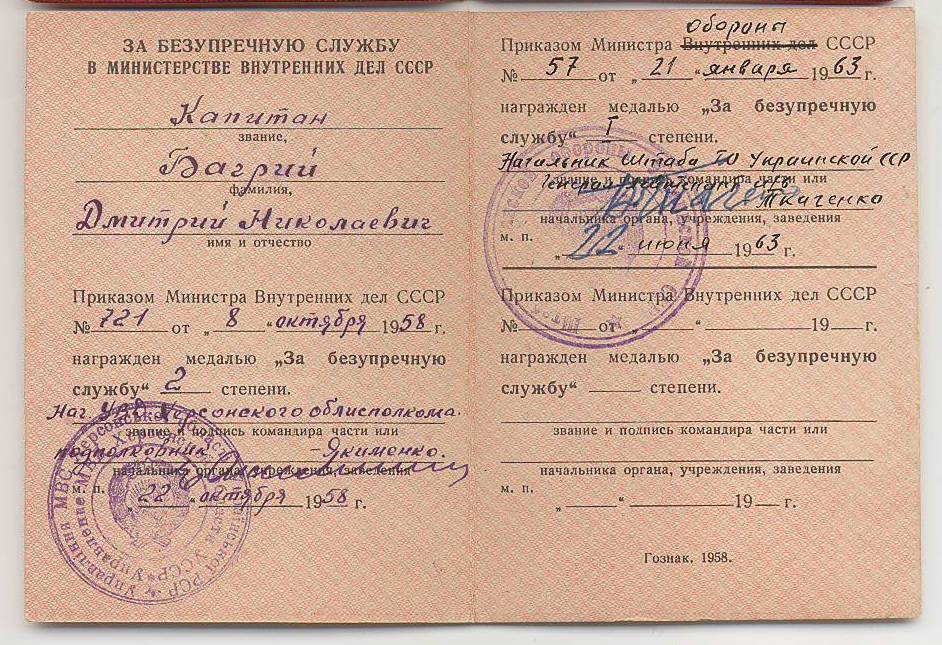 ЗА БЕЗУПРЕЧНУЮ СЛУЖБУ
В МИНИСТЕРСТВЕ ВНУТРЕННИХ ДЕЛ СССР
Капитан
звание,
Багрий
фамилия,
Дмитрий Николаевич
имя и отчество
Приказом Министра Внутренних дел СССР
№ 721 от „ 8 “ октября 1958 г.
награжден медалью „За безупречную
службу“ 2 степени.
Нач. УВД Херсонского облисполкома.
звание и подпись командира части или
подполковник - Якименко.
начальника органа, учреждения, заведения
м. п.
„ 22 “ октября 1958 г.
Обороны
Приказом Министра Внутренних дел СССР
№ 57 от „ 21 “ января 1963 г.
награжден медалью „За безупречную
службу“ I степени.
Начальник Штаба ГО Украинской ССР
звание и подпись командира части или
Ткаченко
начальника органа, учреждения, заведения
м. п.
„ 22 “ июня 1963 г.
Приказом Министра Внутренних дел СССР
№ от „ “ 19 г.
награжден медалью „За безупречную
службу“ степени.
звание и подпись командира части или
начальника органа, учреждения, заведения
м. п.
„ “ 19 г.
Гознак. 1958.